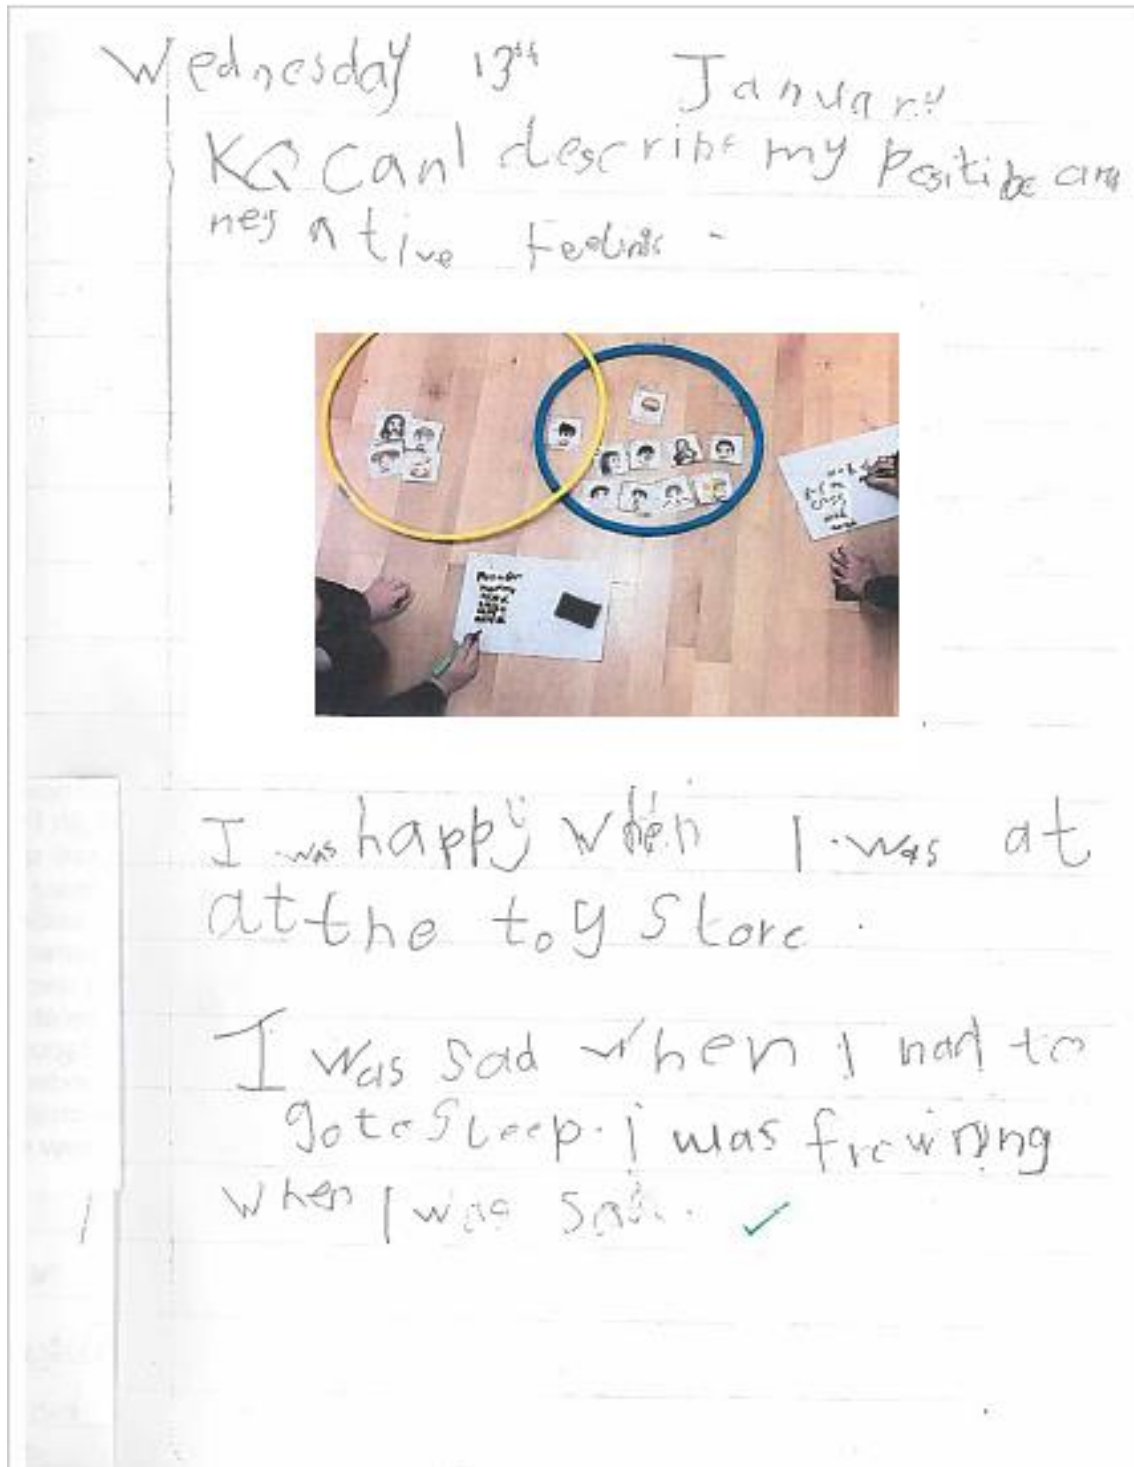 Wednesday 13th January
KQ can I describe my Positive and
negative feelings.
I was happy when I was at
at the toy store.
I was sad when I had to
go to sleep. i was frowning
when I was sad.